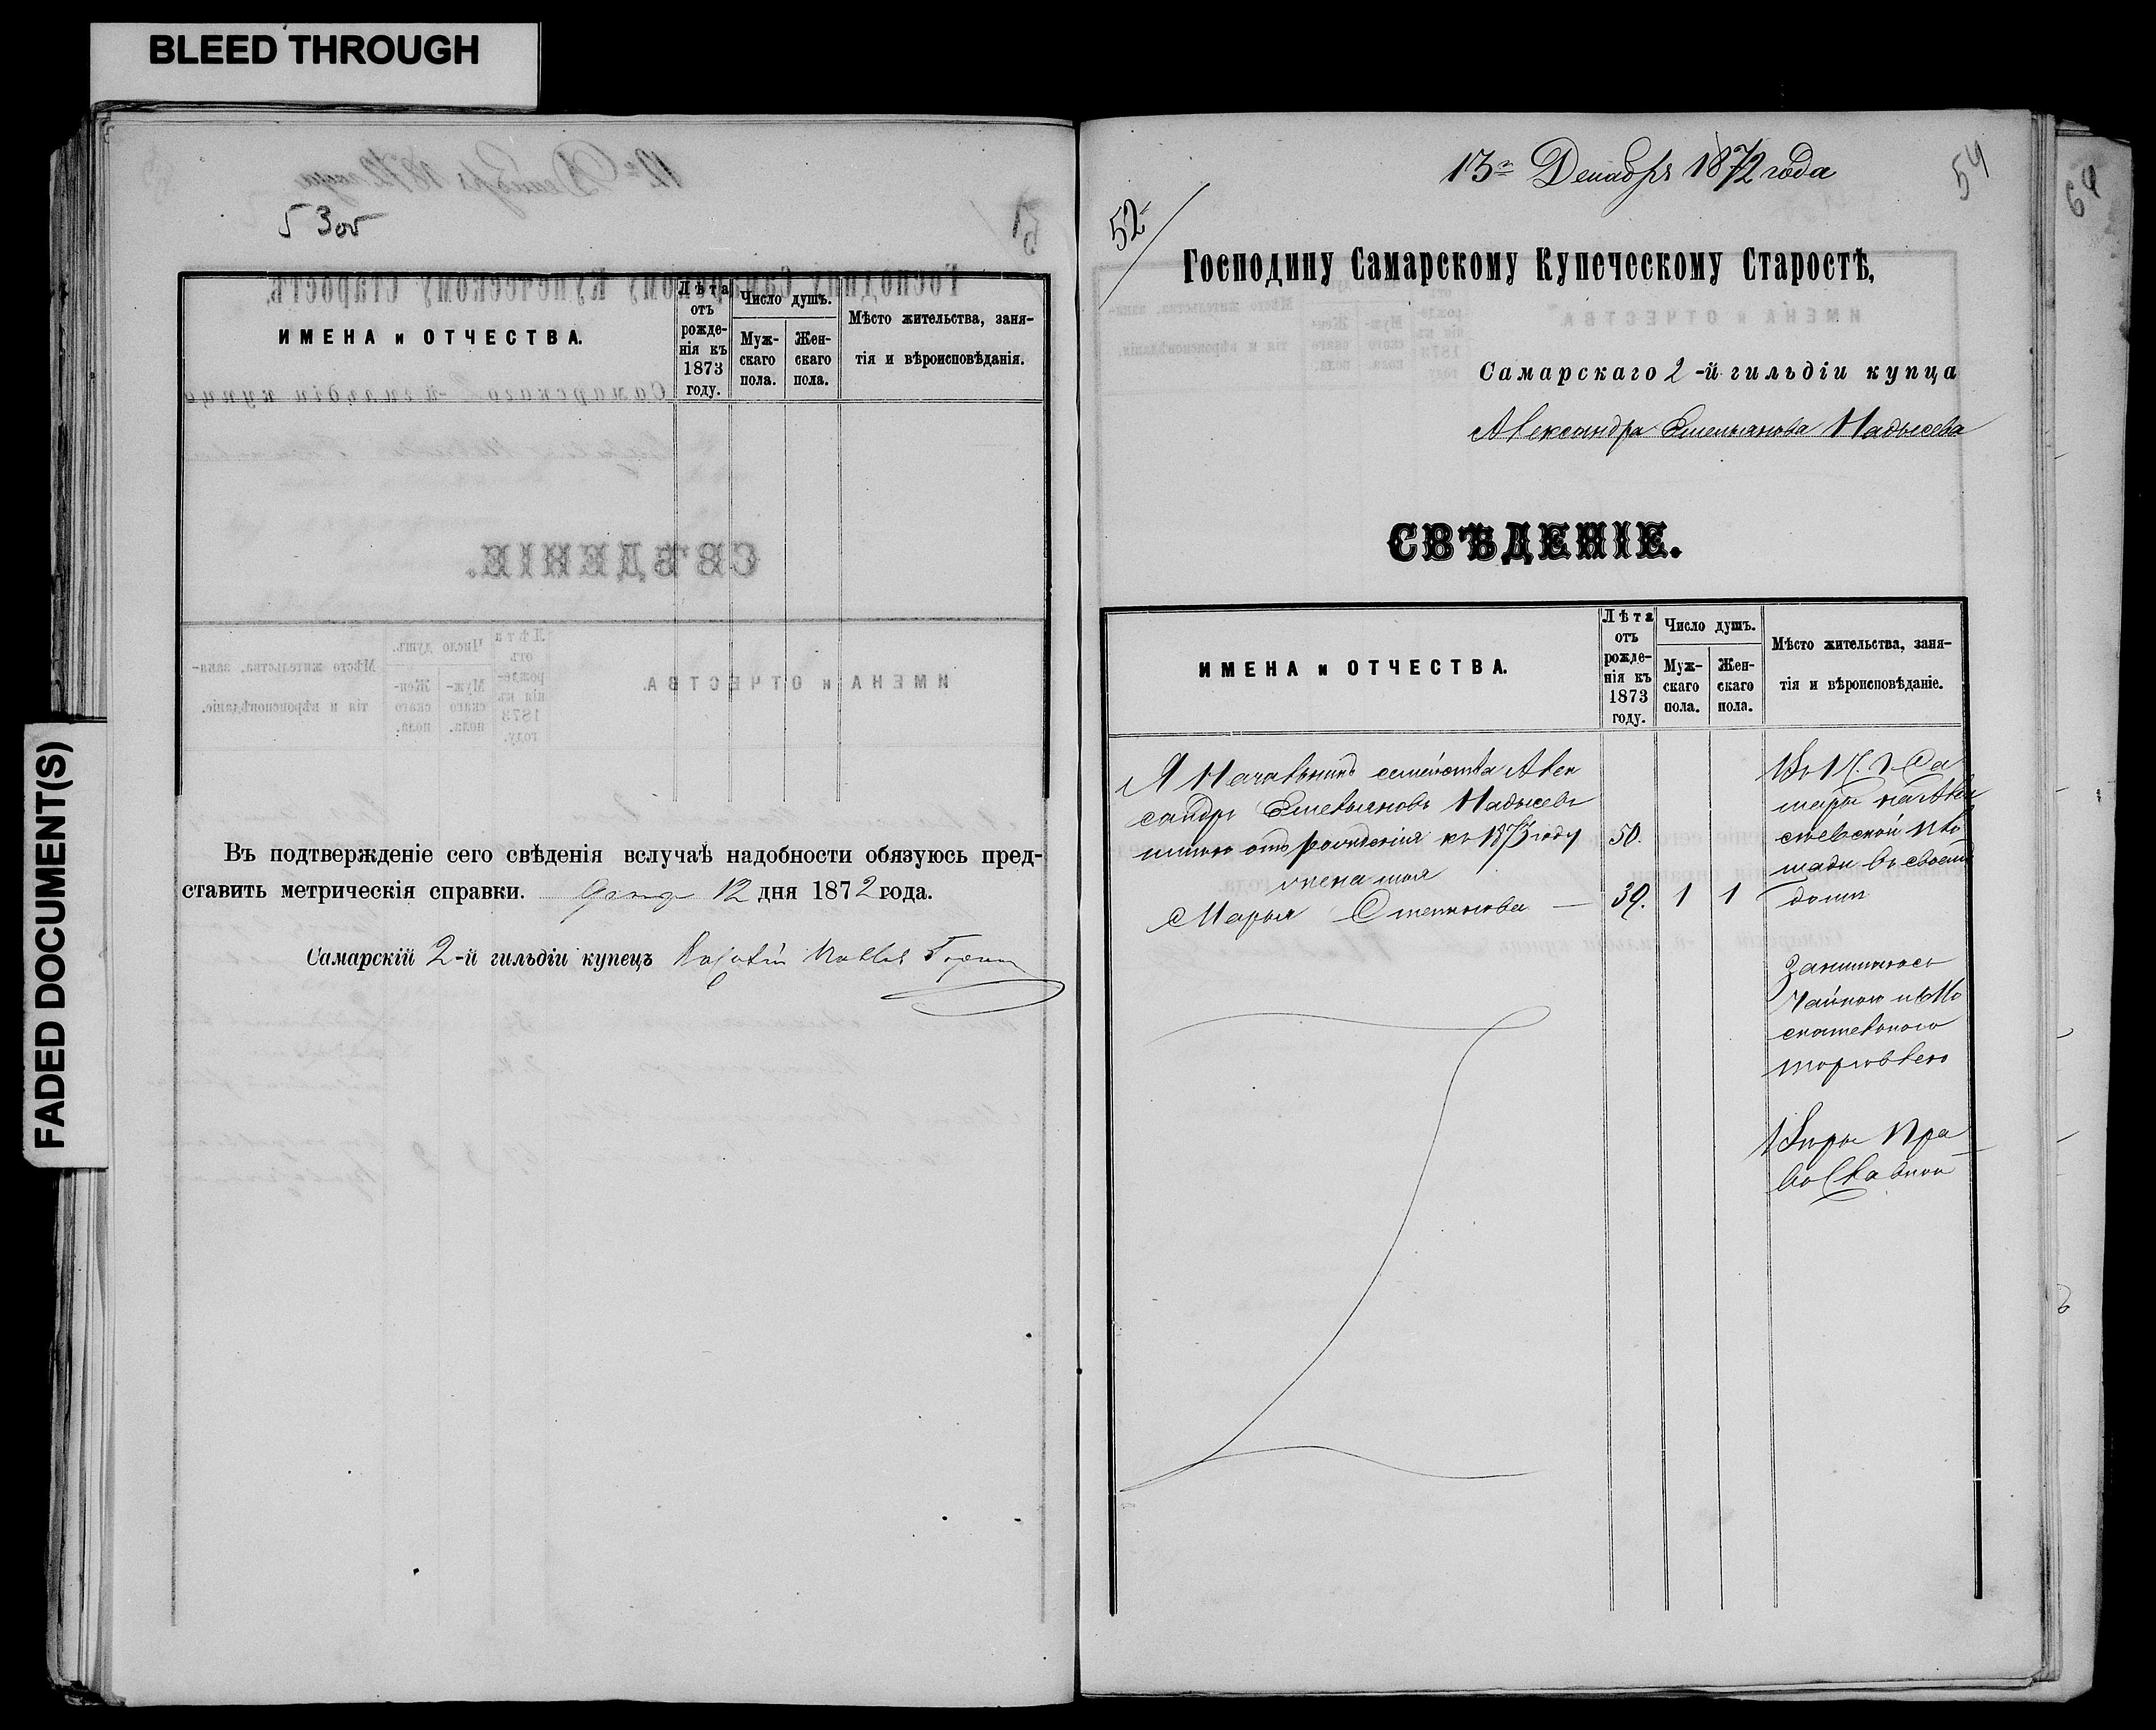 BLEED THROUGH
FADED DOCUMENT(S)
53об
ИМЕНА и ОТЧЕСТВА.
Лѣта отъ рожде-нія къ 1873 году.
Число душъ.
Муж-скаго пола.
Жен-скаго пола.
Мѣсто жительства, заня-
тія и вѣроисповѣданія.
Въ подтвержденіе сего свѣденія вслучаѣ надобности обязуюсь пред-
ставить метрическія справки. 12 дня 1872 года.
Самарскій 2-й гильдіи купецъ
13го Декабря 1872 года
54
64
52
Господину Самарскому Купеческому Старостѣ,
Самарскаго 2-й гильдіи купца
Александра Емельянова Надысева
СВѢДЕНІЕ.
ИМЕНА и ОТЧЕСТВА.
Лѣта отъ рожде-нія къ 1873 году.
Число душъ.
Муж-скаго пола.
Жен-скаго пола.
Мѣсто жительства, заня-
тія и вѣроисповѣданіе.
Я Начальникъ семейства Алек
сандръ Емельяновъ Надысевъ
отъ рожденія къ 1873 году 50.
жена моя
Марья 39. 1 1
Са
мары на Алек
сѣевской пло
щади въ своемъ
домѣ
Занимаюсь
Чайною и Мо
скательною
торговлею
Вѣры Пра
вославной